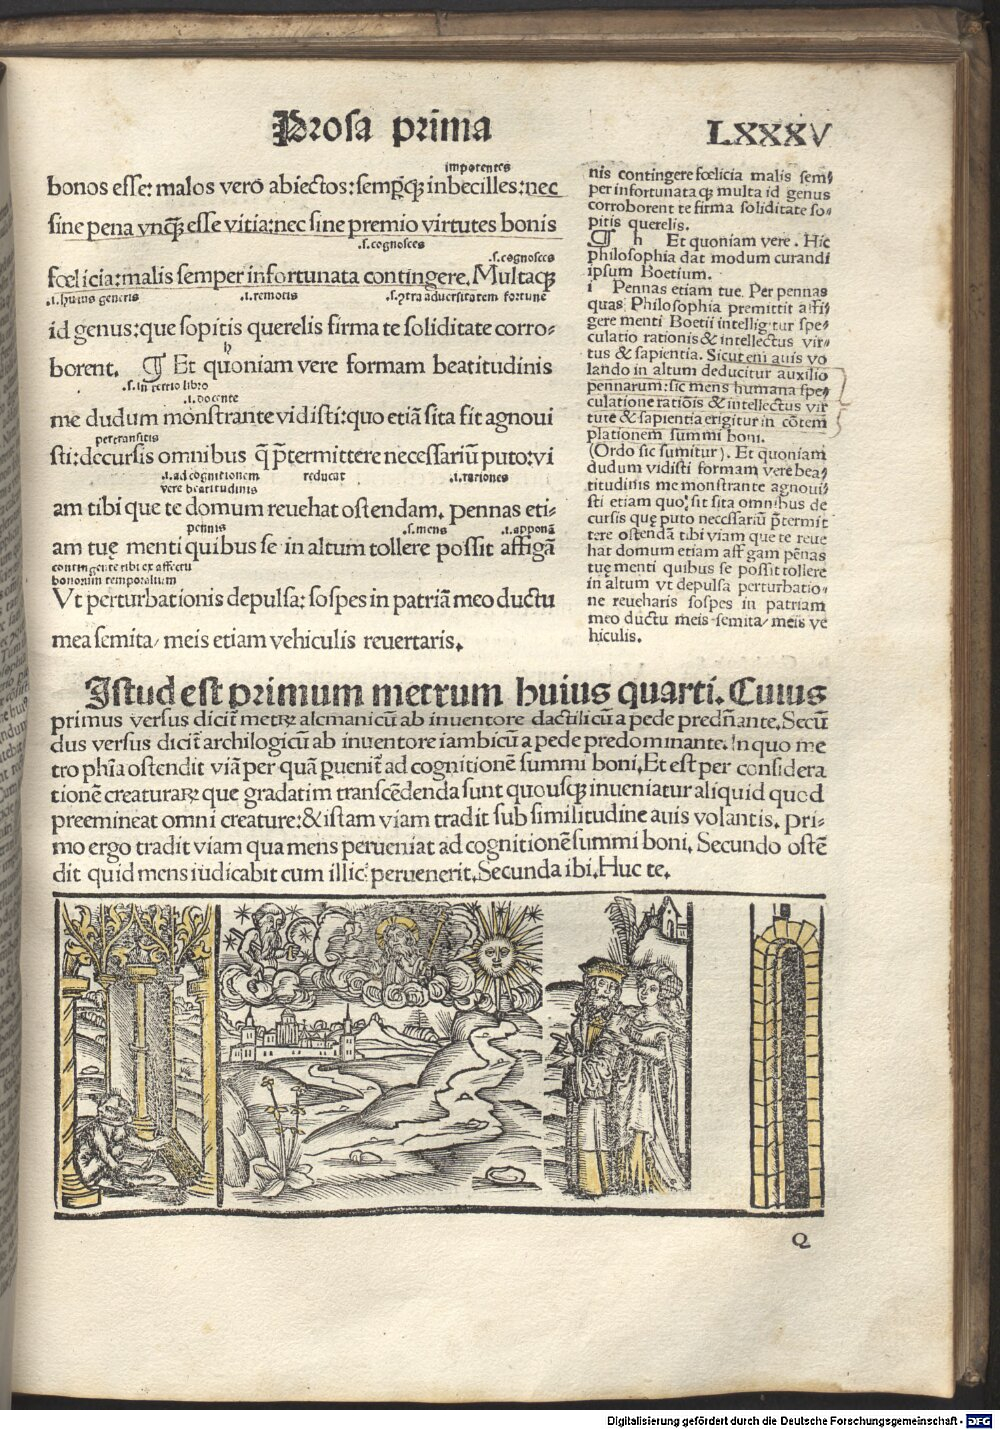 Prosa prima LXXXV
impotentes
bonos esse: malos vero abiectos: semp̱q̃ꝫ inbecilles: nec
sine pena vnq̃ꝫ esse vitia: nec sine premio virtutes bonis
.s.cognosces .s.cognosces
fœlicia: malis semper infortunata contingere. Multaqꝫ
.i.huius generis .i.remotis .s.ꝯtra aduersitatem fortune
id genus: que sopitis querelis firma te soliditate corro⸗
h
borent. ¶ Et quoniam vere formam beatitudinis
.s.in tertio libro .i.docente
me dudum monstrante vidisti: quo etiā sita fit agnoui
pertransitis
sti: decursis omnibus q̄ p̄termittere necessariū puto: vi
.i.ad cognitionem vere beatitudinis reducat .i.rationes
am tibi que te domum reuehat ostendam. Pennas eti⸗
pennis .s.mens .i.apponā
am tuę menti quibus se in altum tollere possit affigā
contingente tibi ex affectu
bonorum temporalium
Vt perturbationis depulsa: sospes in patriā meo ductu
mea semita/ meis etiam vehiculis reuertaris.
nis contingere fœlicia malis sem⸗
per infortunata qꝫ multa id genus
corroborent te firma soliditate so⸗
pitis querelis.
¶ h Et quoniam vere. Hic
philosophia dat modum curandi
ipsum Boetium.
i Pennas etiam tue. Per pennas
quas Philosophia premittit affi⸗
gere menti Boetii intelligitur spe⸗
culatio rationis & intellectus vir⸗
tus & sapientia. Sicut eni auis vo
lando in altum deducitur auxilio
pennarum: sic mens humana spe⸗
culatione ratiōis & intellectus vir
tute & sapientia erigitur in cōtem
plationem summi boni.
(Ordo sic sumitur). Et quoniam
dudum vidisti formam vere bea⸗
titudinis me monstrante agnoui⸗
sti etiam quo sit sita omnibus de
cursis quę puto necessariū p̄termit
tere ostendā tibi viam que te reue
hat domum etiam affigam pēnas
tuę menti quibus se possit tollere
in altum vt depulsa perturbatio⸗
ne reueharis sospes in patriam
meo ductu meis semita/ meis ve
hiculis.
Istud est primum metrum huius quarti. Cuius
primus versus dicit̄ metrꝝ alcmanicū ab inuentore dactilicū a pede predn̄ante. Secū
dus versus dicit̄ archilogicū ab inuentore iambicū a pede predominante. In quo me
tro phīa ostendit viā per quā ꝑuenit̄ ad cognitionē summi boni. Et est per considera
tionē creaturaꝝ que gradatim transcēdenda sunt quousqꝫ inueniatur aliquid quod
preemineat omni creature: & istam viam tradit sub similitudine auis volantis. Pri⸗
mo ergo tradit viam qua mens perueniat ad cognitionē summi boni. Secundo ostē
dit quid mens iudicabit cum illic peruenerit. Secunda ibi. Huc te.
Q
Digitalisierung gefördert durch die Deutsche Forschungsgemeinschaft - DFG